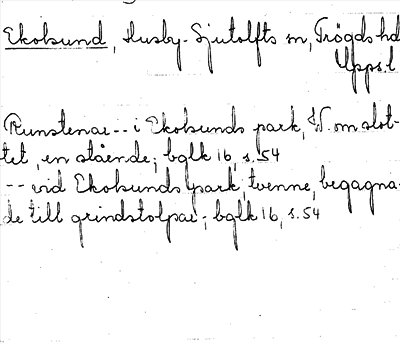 Ekolsund, Husby-Sjutolfts sn, Trögds hd
Upps.l
Runstenar -- i Ekolsunds park, V. om slot-
tet, en stående; bglk 16, s. 54
-- vid Ekolsunds park, tvenne, begagna-
de till grindstolpar; bglk 16, s. 54